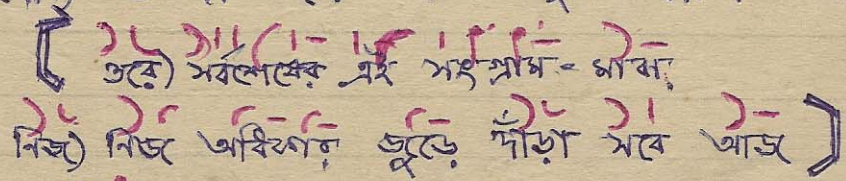 [ ওরে) সর্বশেষের এই সংগ্রাম - মাঝ,
নিজ) নিজ অধিকার জুড়ে দাঁড়া সবে আজ ]